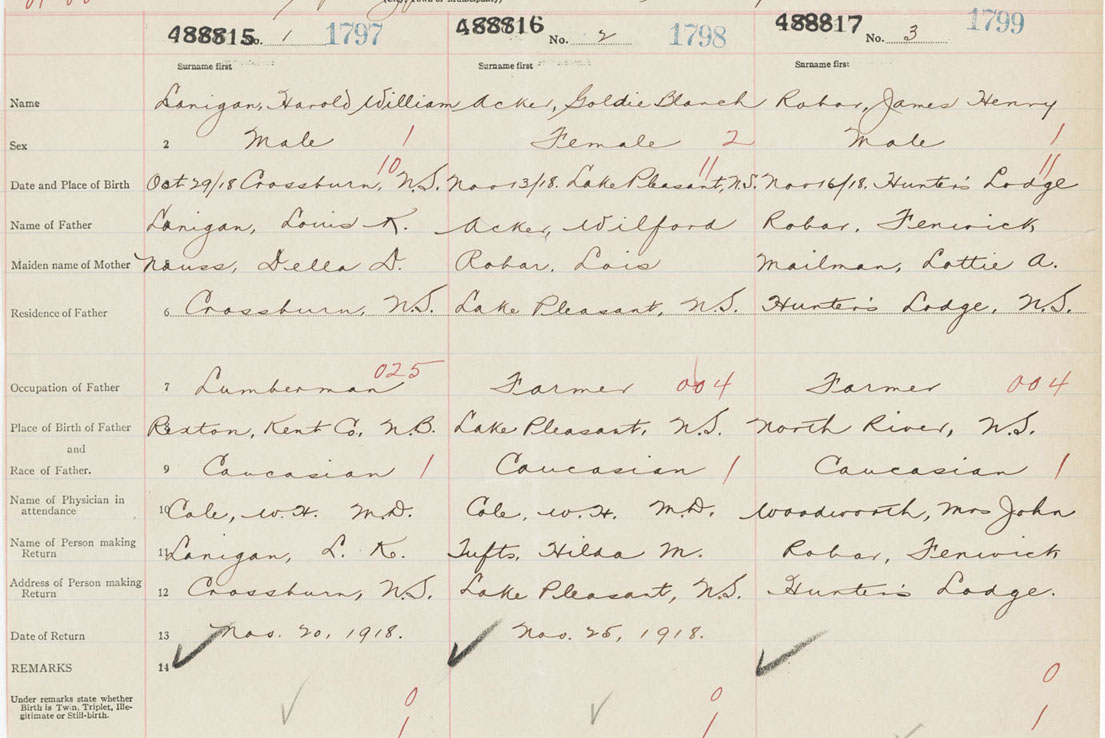 488815 No. 1 1797 488816 No. 2 1798 488817 No. 3 1799
Surname first Surname first Surname first
Name Lanigan, Harold William Acker, Goldie Blanch Robar, James Henry
Sex 2 Male 1 Female 2 Male 1
10 11 11
Date and Place of Birth Oct 29/18 Crossburn, N.S. Nov 13/18. Lake Pleasant, N.S. Nov 16/18. Hunter's Lodge
Name of Father Lanigan, Louis K. Acker, Wilford Robar, Fenwick
Maiden name of Mother Nauss, Della D. Robar, Lois Mailman, Lottie A.
Residence of Father 6 Crossburn, N.S. Lake Pleasant, N.S. Hunter's Lodge, N.S.
Occupation of Father 7 Lumberman 025 Farmer 004 Farmer 004
Place of Birth of Father Rexton, Kent Co, N.B. Lake Pleasant, N.S. North River, N.S.
and
Race of Father. 9 Caucasian 1 Caucasian 1 Caucasian 1
Name of Physician in
attendance 10 Cole, W.H. M.D. Cole, W.H. M.D. Woodworth, Mrs John
Name of Person making
Return 11 Lanigan, L. K. Tufts, Hilda M. Robar, Fenwick
Address of Person making
Return 12 Crossburn, N.S. Lake Pleasant, N.S. Hunter's Lodge.
Date of Return 13 Nov. 20, 1918. Nov. 25, 1918.
REMARKS 14
Under remarks state whether
Birth is Twin, Triplet, Ille-
gitimate or Still-birth.
0 0 0
1 1 1